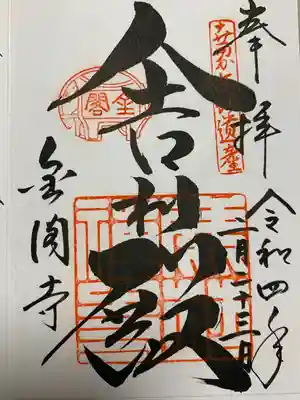 奉拝
令和四年
二月二十三日
舎利殿
金閣寺
金閣